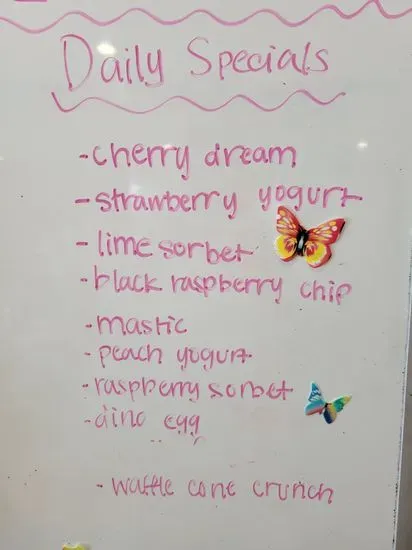 Daily Specials
- cherry dream
- strawberry yogurt
- lime sorbet
- black raspberry chip
- mastic
- peach yogurt
- raspberry sorbet
- dino egg
- waffle cone crunch